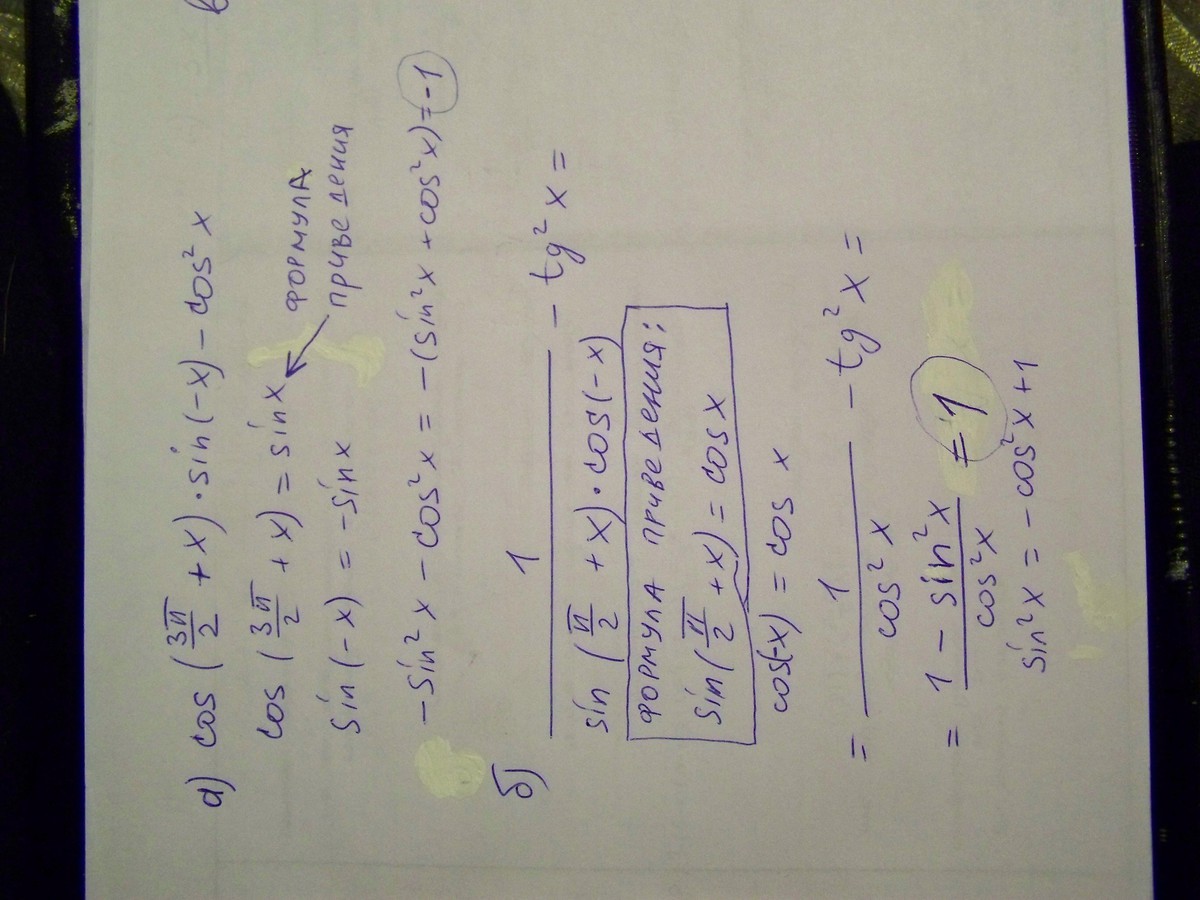 а) cos (3π/2 + x) · sin(-x) - cos² x
cos (3π/2 + x) = sin x
формула
приведения
sin (-x) = -sin x
-sin² x - cos² x = -(sin² x + cos² x) = -1
б) 1 / (sin (π/2 + x) · cos(-x)) - tg² x =
формула приведения:
sin (π/2 + x) = cos x
cos(-x) = cos x
= 1 / cos² x - tg² x =
= (1 - sin² x) / cos² x = 1
sin² x = - cos² x + 1